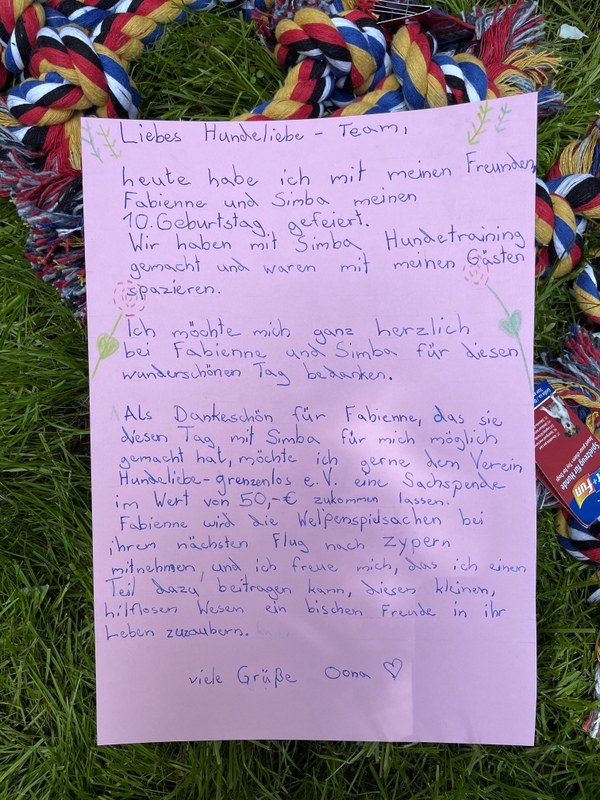 Liebes Hundeliebe - Team,
heute habe ich mit meinen Freunden
Fabienne und Simba meinen
10. Geburtstag gefeiert.
Wir haben mit Simba Hundetraining
gemacht und waren mit meinen Gästen
spazieren.
Ich möchte mich ganz herzlich
bei Fabienne und Simba für diesen
wunderschönen Tag bedanken.
Als Dankeschön für Fabienne, das sie
diesen Tag mit Simba für mich möglich
gemacht hat, möchte ich gerne dem Verein
Hundeliebe-grenzenlos e.V. eine Sachspende
im Wert von 50,-€ zukommen lassen.
Fabienne wird die Welpenspielsachen bei
ihrem nächsten Flug nach Zypern
mitnehmen, und ich freue mich, das ich einen
Teil dazu beitragen kann, diesen kleinen,
hilflosen Wesen ein bischen Freude in ihr
Leben zuzaubern.
viele Grüße Oona ♡
Spielzeug für Hunde
Fun